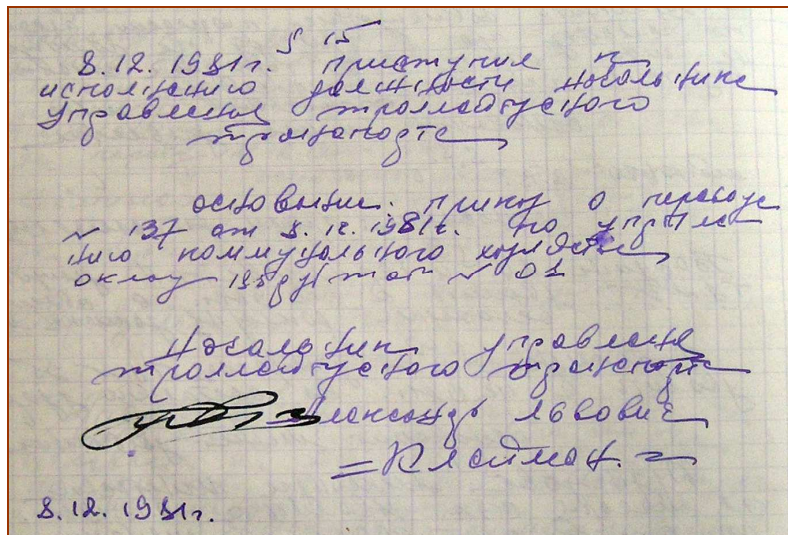 § 15
8.12.1981г. приступил к
исполнению должности начальника
управления троллейбусного
транспорта
основание: приказ о переводе
№ 137 от 8.12.1981г. по управле
нию коммунального хозяйства
оклад 195 руб таб № 01
Начальник управления
троллейбусного транспорта
Александр Львович
= Клейман. =
8.12.1981г.